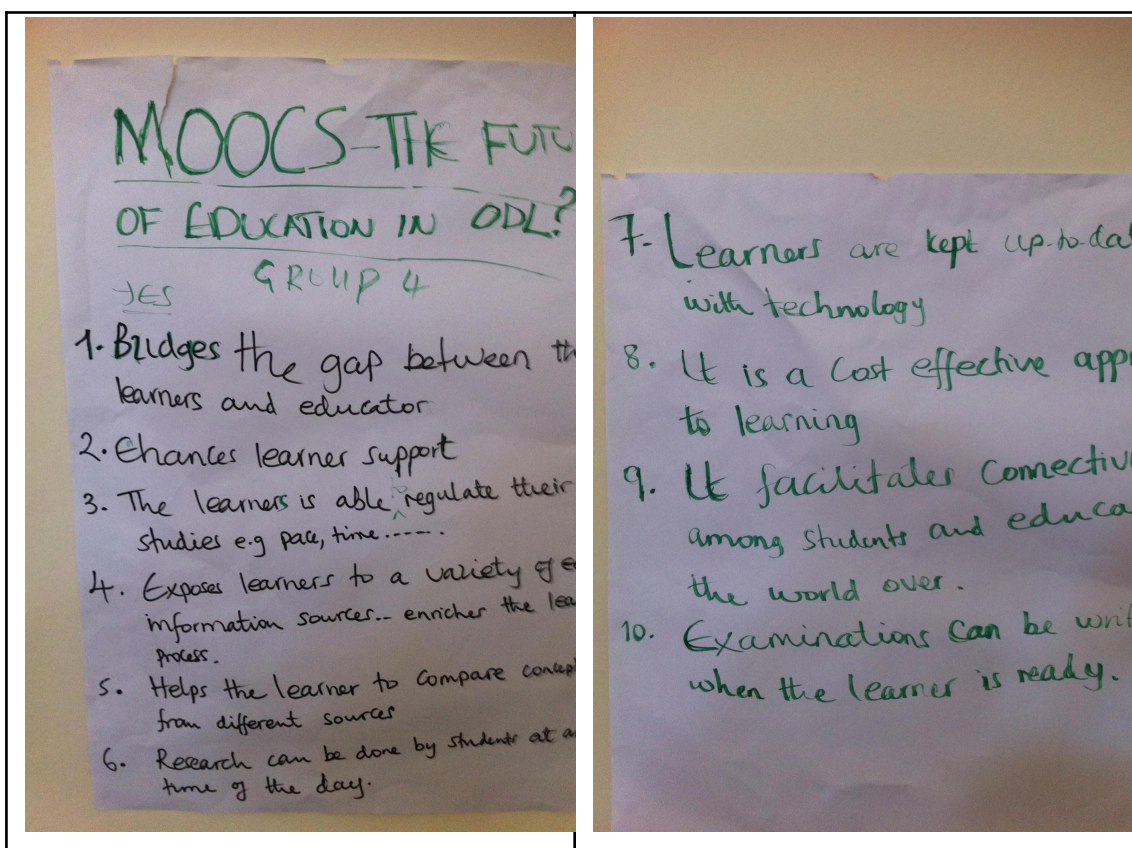 MOOCS-THE FUTU
OF EDUCATION IN ODL?
GROUP 4
YES
1. Bridges the gap between th
learners and educator
2. Ehances learner support
3. The learners is able to regulate their
studies e.g pace, time......
4. Exposes learners to a variety of e
information sources.. enriches the lea
process.
5. Helps the learner to compare concep
from different sources
6. Research can be done by students at a
time of the day.
7. Learners are kept up-to-dat
with technology
8. It is a cost effective appr
to learning
9. It facilitates connectiv
among students and educa
the world over.
10. Examinations can be writ
when the learner is ready.